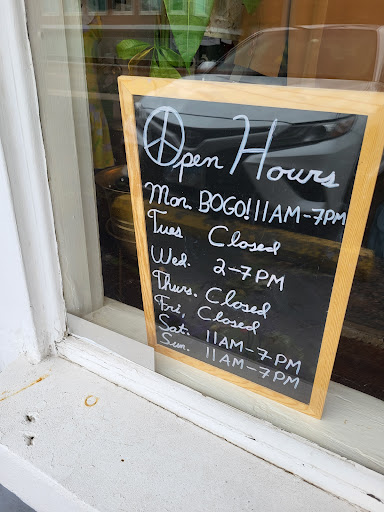 Open Hours
Mon. BOGO! 11AM-7PM
Tues Closed
Wed. 2-7PM
Thurs. Closed
Fri, Closed
Sat. 11AM-7PM
Sun. 11AM-7PM